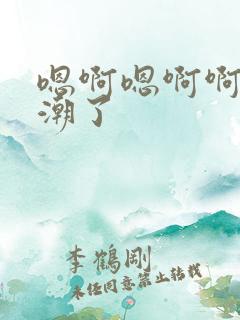 嗯啊嗯啊啊
潮了
李鹤刚
未经同意禁止转载